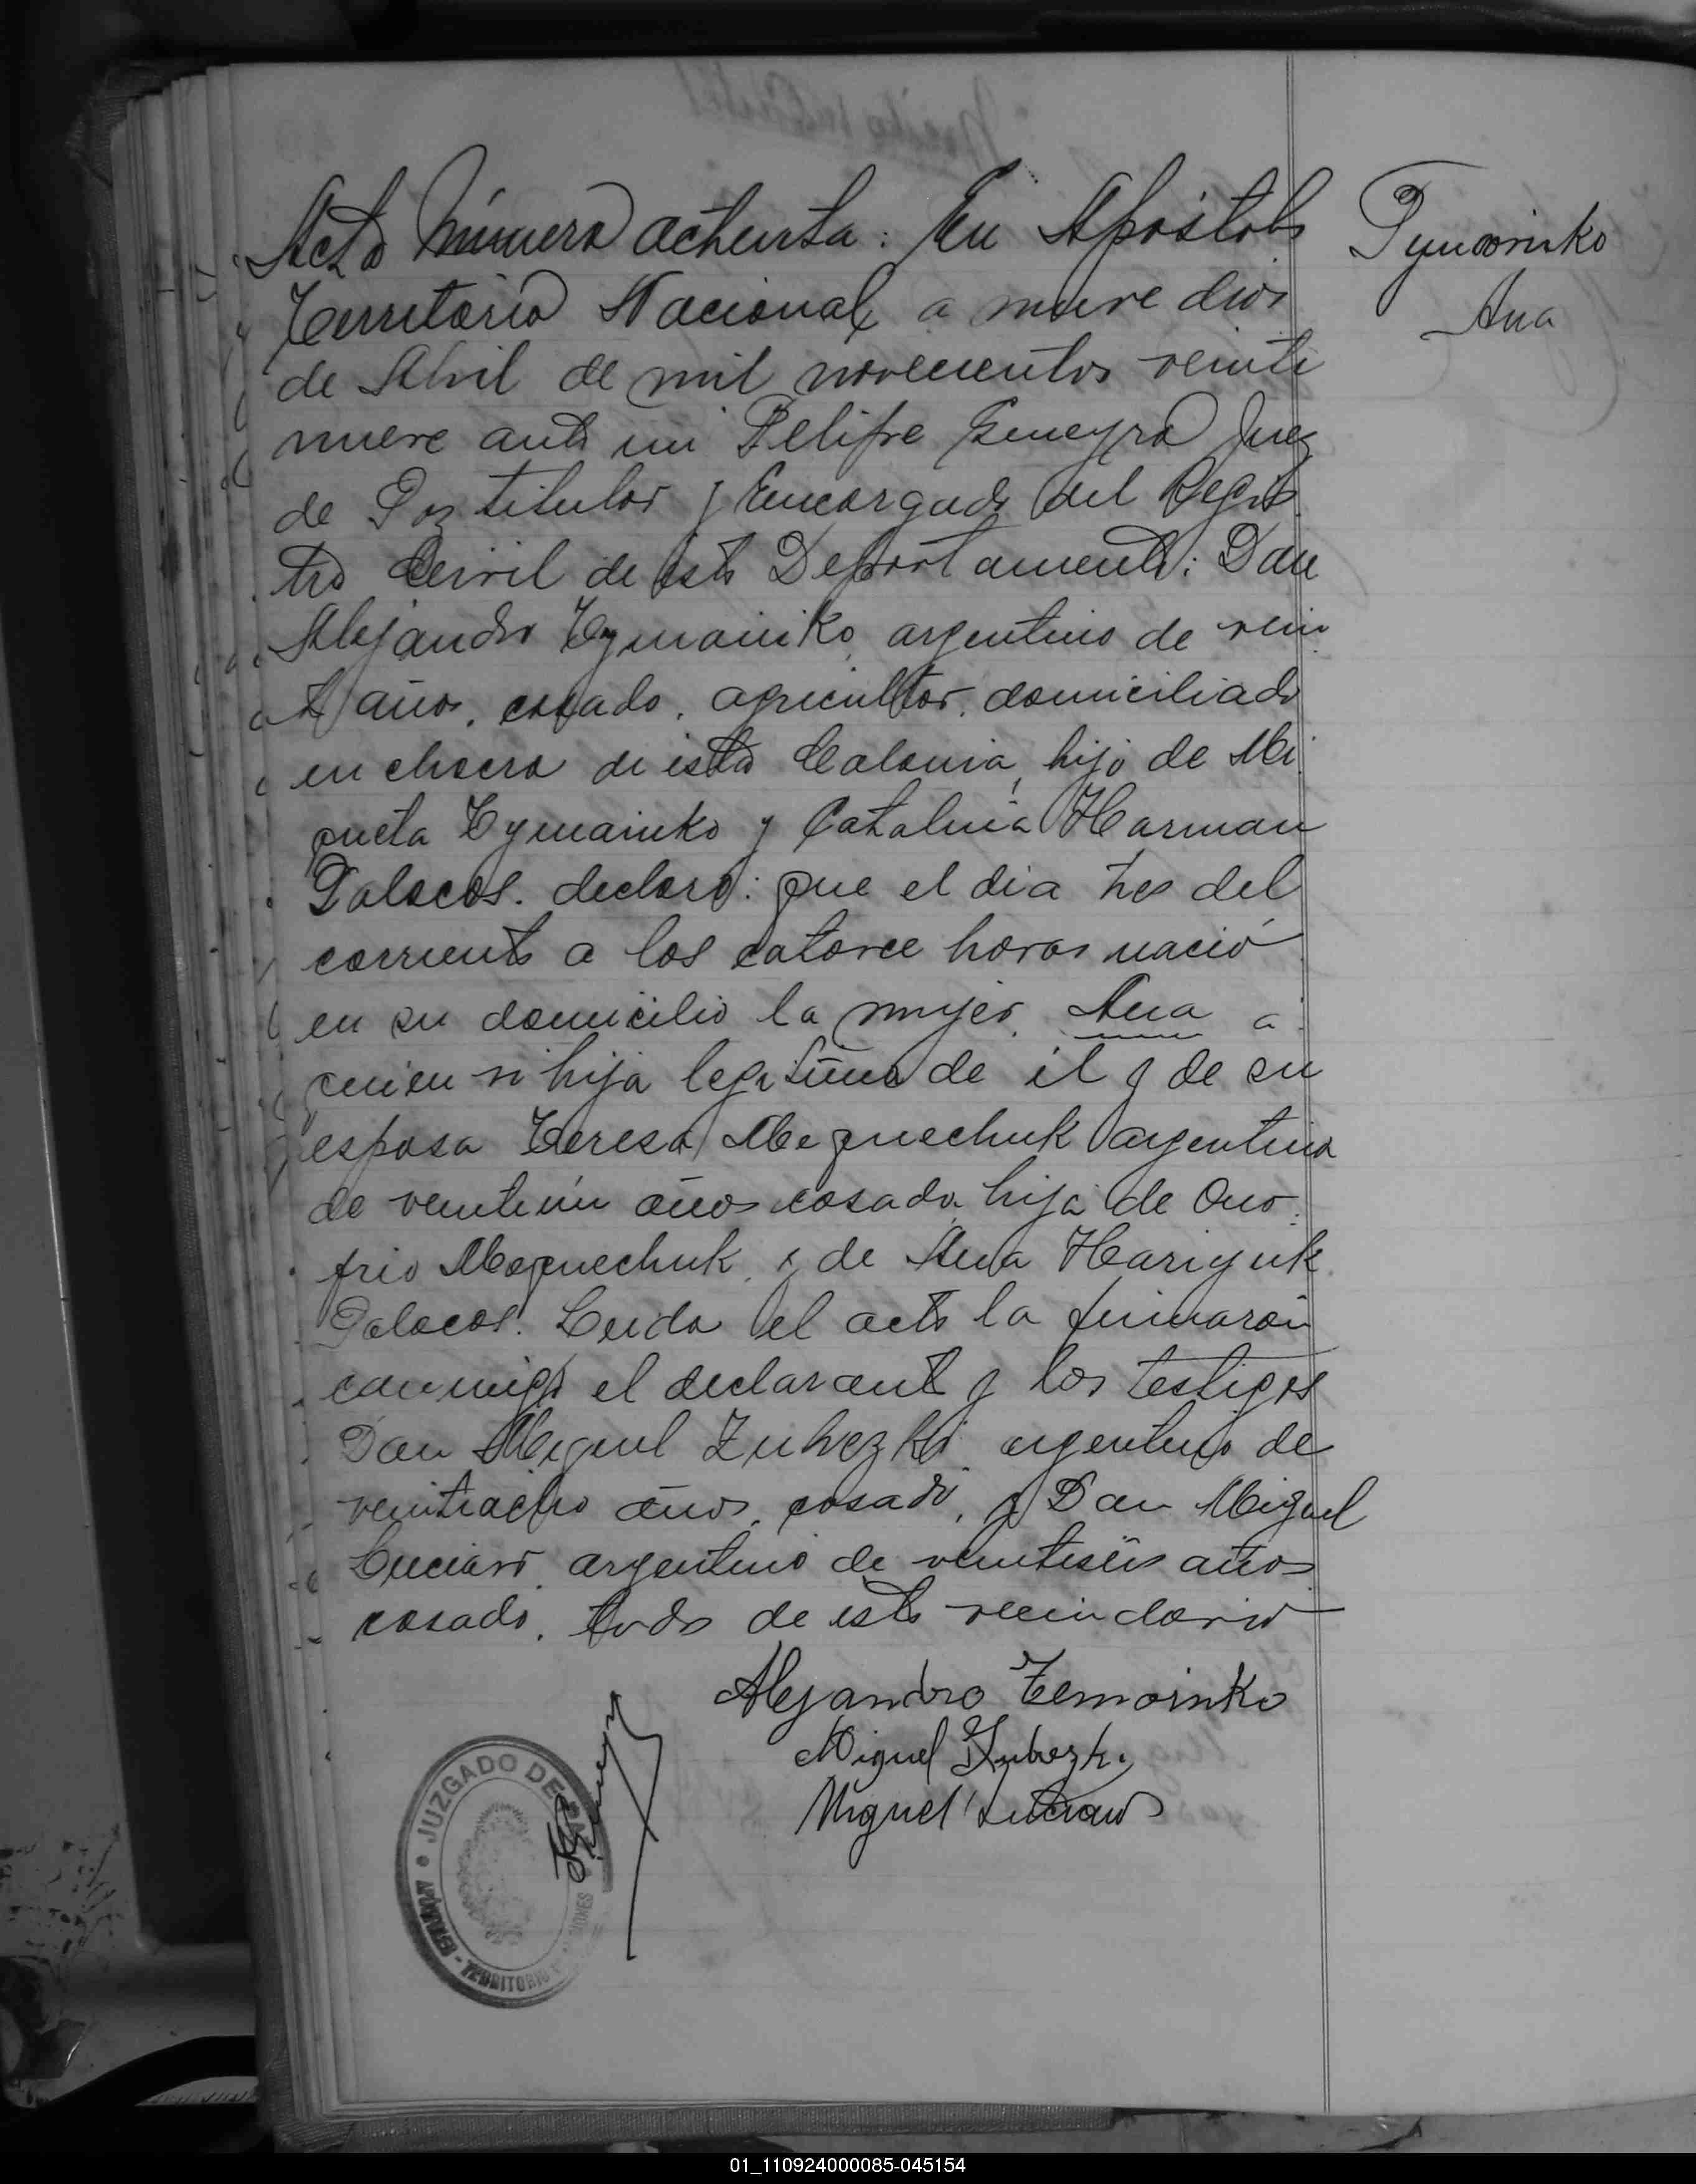 Acta Número ochenta: En Apóstoles
Tymoinko
Territorio Nacional, a nueve dias
Ana
de Abril de mil novecientos veinte
nueve ante mi Felipe Gineyra Juez
de Paz titular y Encargado del Regis
tro Civil de este Departamento: Don
Alejandro Tymoiniko, argentino de vein
te años, casado, agricultor, domiciliado
en chacra de esta Colonia, hijo de Ni
queta Tymainko y Catalina Harman
Polacos. declaró: que el dia tres del
corriente a las catorce horas nació
en su domicilio la mujer, Ana a
quien si hija legitima de él y de su
esposa Teresa Mequechuk argentina
de veintiún años casada, hija de Ono
frio Mequechuk, y de Ana Hariyuk
Polacos. Leida el acta la firmaron
conmigo el declarante y los testigos
Don Miguel Zubezki argentino de
veintiocho años, casado, y Don Miguel
Luciani argentino de veintiseis años
casado, todos de este vecindario
Alejandro Temoinko
Miguel Zubezki
Miguel
JUZGADO DE PAZ
TERRITORIO MISIONES